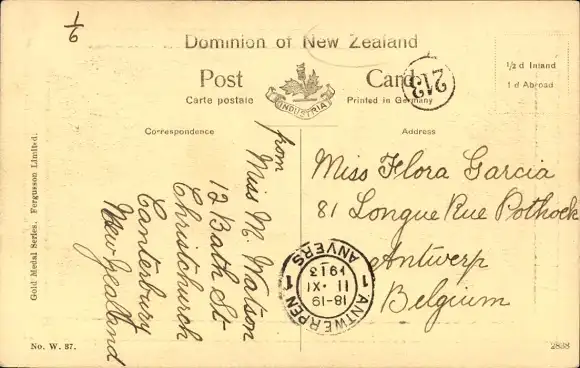 1/6
Dominion of New Zealand
Post Card
Carte postale
Printed in Germany
INDUSTRIA
213
½ d Inland
1 d Abroad
Correspondence
Address
from
Miss M. Watson
12 Bath St
Christchurch
Canterbury
New Zealand
Miss Flora Garcia
81 Longue Rue Pothoek
Antwerp
Belgium
ANTWERPEN 1
18-19
11 · XI
1913
1 ANVERS
Gold Medal Series. Fergusson Limited.
No. W. 87.
2838